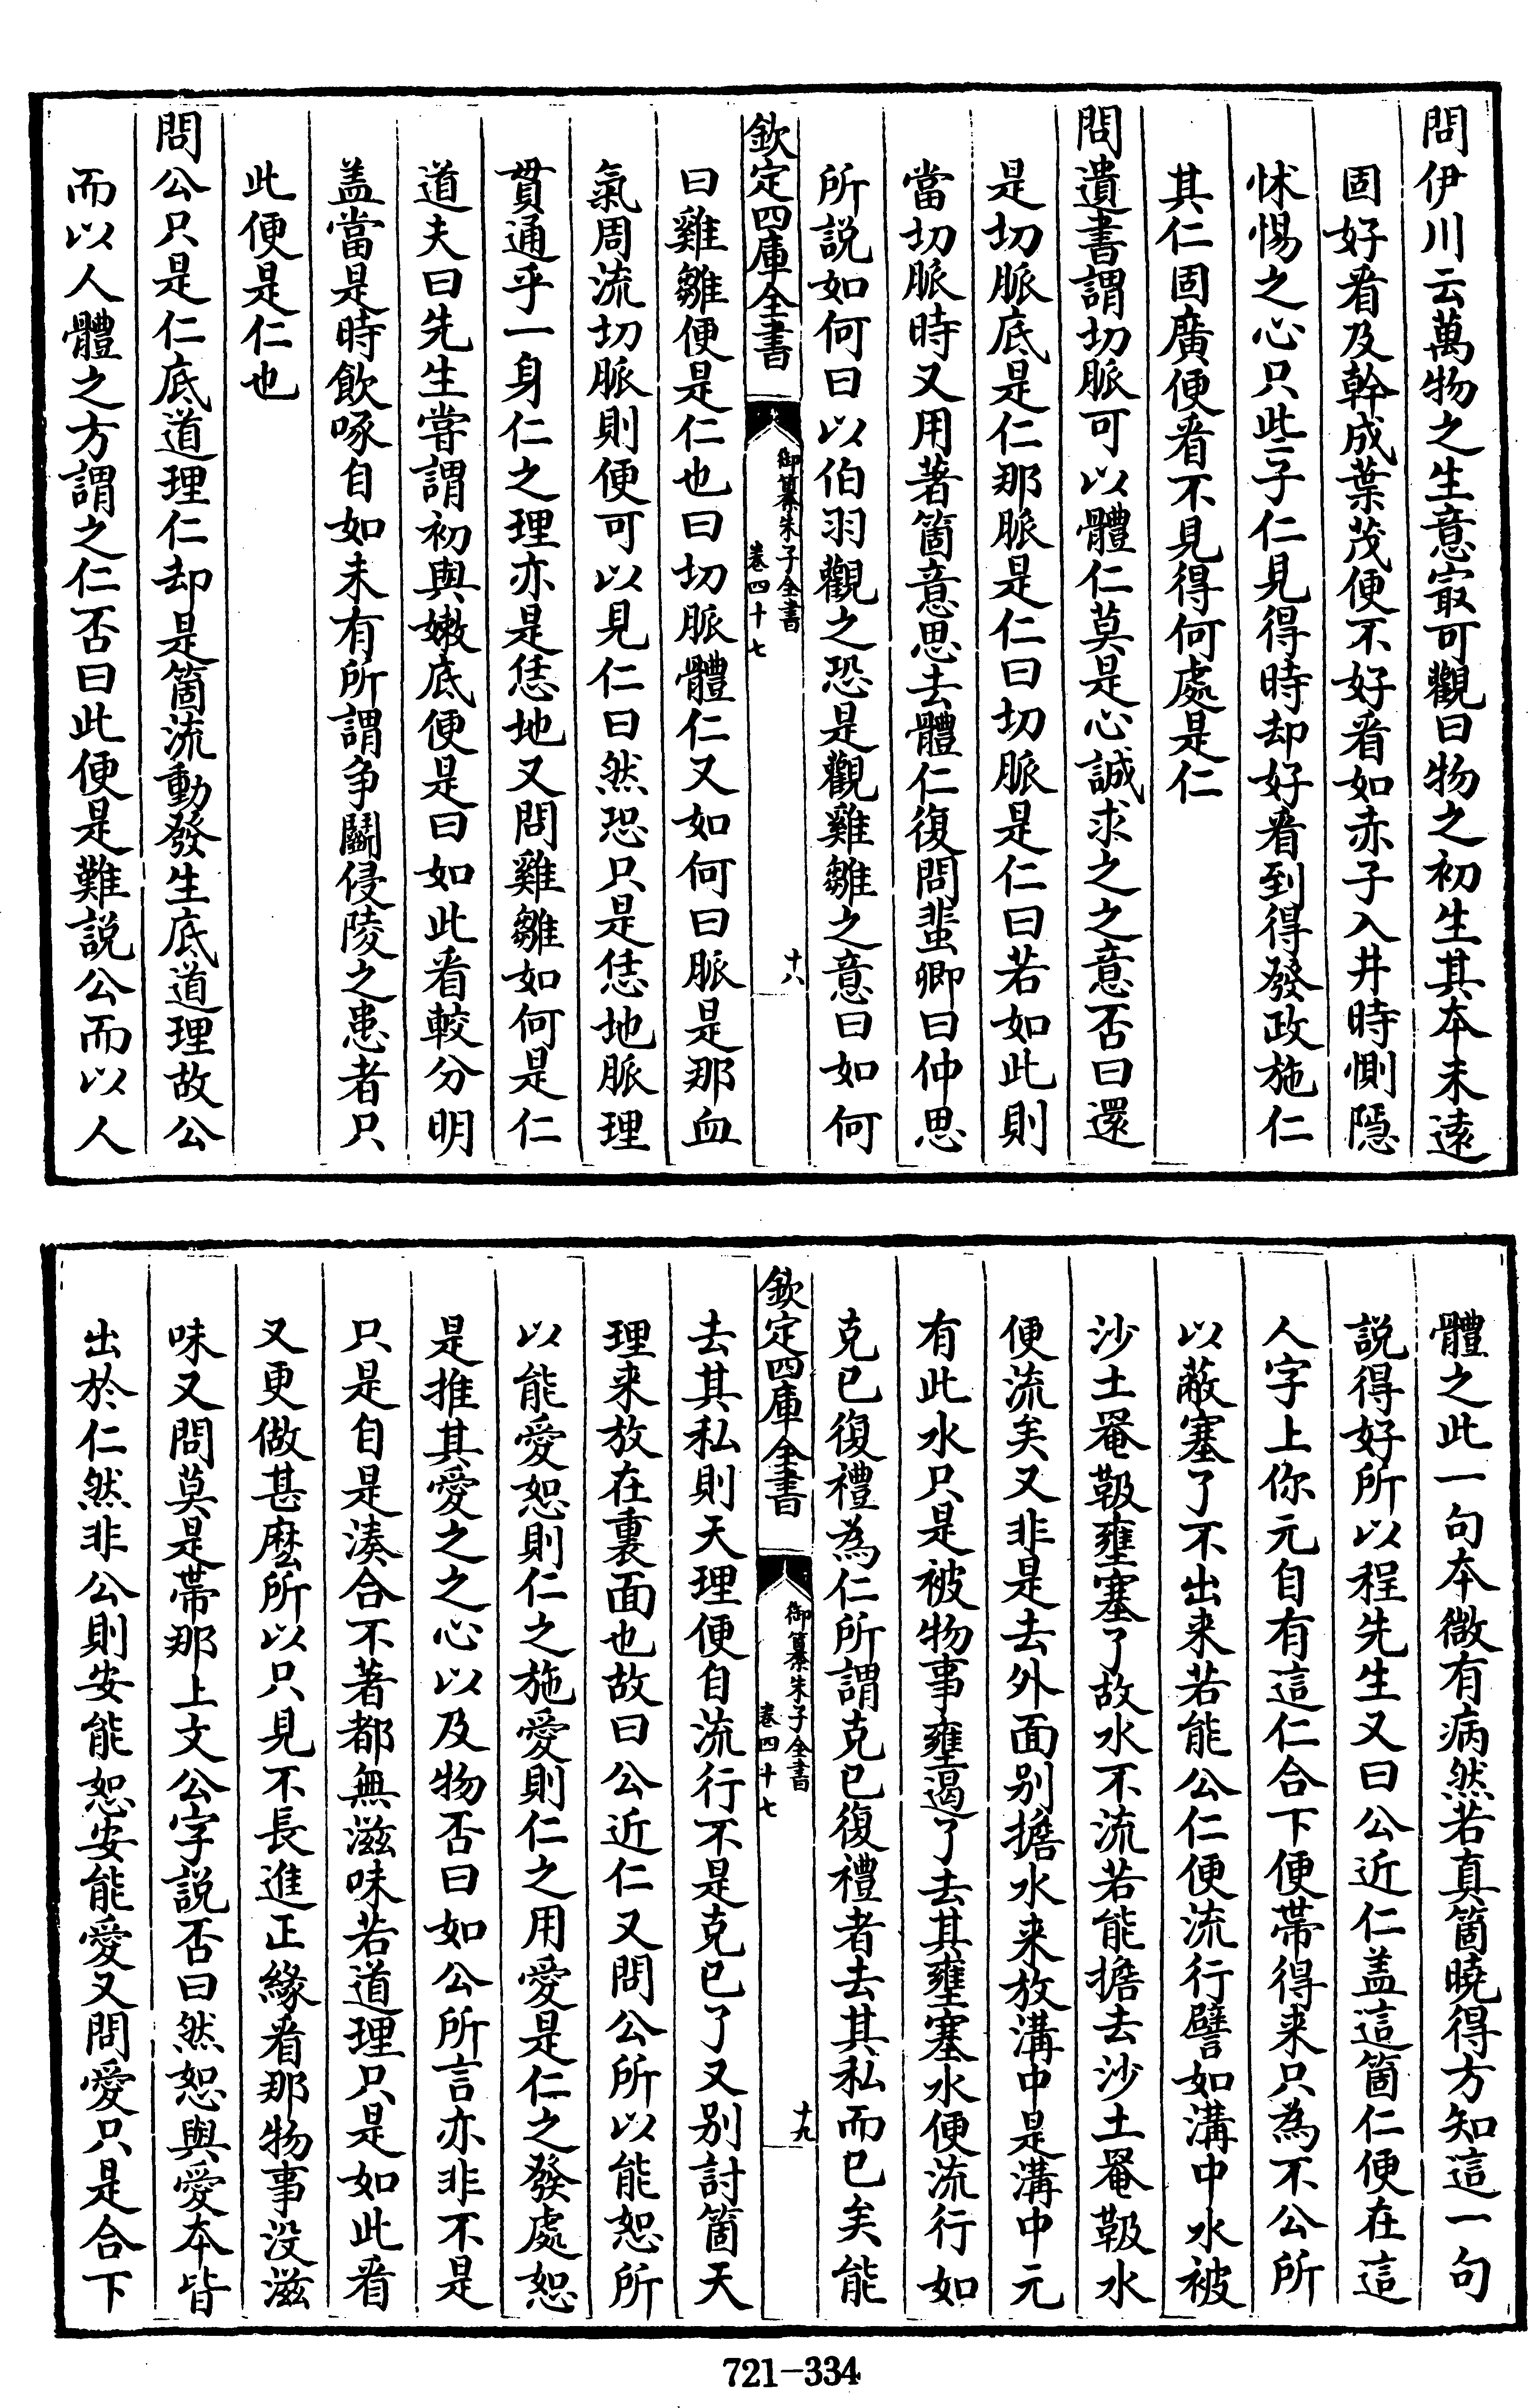 問伊川云萬物之生意㝡可觀曰物之初生其本未逺
固好㸔及幹成葉茂便不好㸔如赤子入井時惻隠
怵惕之心只些子仁見得時却好㸔到得發政施仁
其仁固廣便㸔不見得何處是仁
問遺書謂切脈可以體仁莫是心誠求之之意否曰還
是切脈底是仁那脈是仁曰切脈是仁曰若如此則
當切脈時又用著箇意思去體仁復問蜚卿曰仲思
所說如何曰以伯羽觀之恐是觀雞雛之意曰如何
欽定四庫全書
御纂朱子全書
卷四十七
十八
曰雞雛便是仁也曰切脈體仁又如何曰脈是那血
氣周流切脈則便可以見仁曰然恐只是恁地脈理
貫通乎一身仁之理亦是恁地又問雞雛如何是仁
道夫曰先生嘗謂初與嫩底便是曰如此㸔較分明
盖當是時飲啄自如未有所謂争鬭侵陵之患者只
此便是仁也
問公只是仁底道理仁却是箇流動發生底道理故公
而以人體之方謂之仁否曰此便是難說公而以人
體之此一句本微有病然若真箇曉得方知這一句
説得好所以程先生又曰公近仁盖這箇仁便在這
人字上你元自有這仁合下便帯得来只為不公所
以蔽塞了不出来若能公仁便流行譬如溝中水被
沙土罨靸壅塞了故水不流若能擔去沙土罨靸水
便流矣又非是去外面别擔水来放溝中是溝中元
有此水只是被物事壅遏了去其壅塞水便流行如
克已復禮為仁所謂克已復禮者去其私而已矣能
欽定四庫全書
御纂朱子全書
卷四十七
十九
去其私則天理便自流行不是克已了又别討箇天
理来放在裏面也故曰公近仁又問公所以能恕所
以能愛恕則仁之施愛則仁之用愛是仁之發處恕
是推其愛之之心以及物否曰如公所言亦非不是
只是自是湊合不著都無滋味若道理只是如此㸔
又更做甚麽所以只見不長進正緣㸔那物事没滋
味又問莫是帯那上文公字説否曰然恕與愛本皆
出於仁然非公則安能恕安能愛又問愛只是合下
721-334